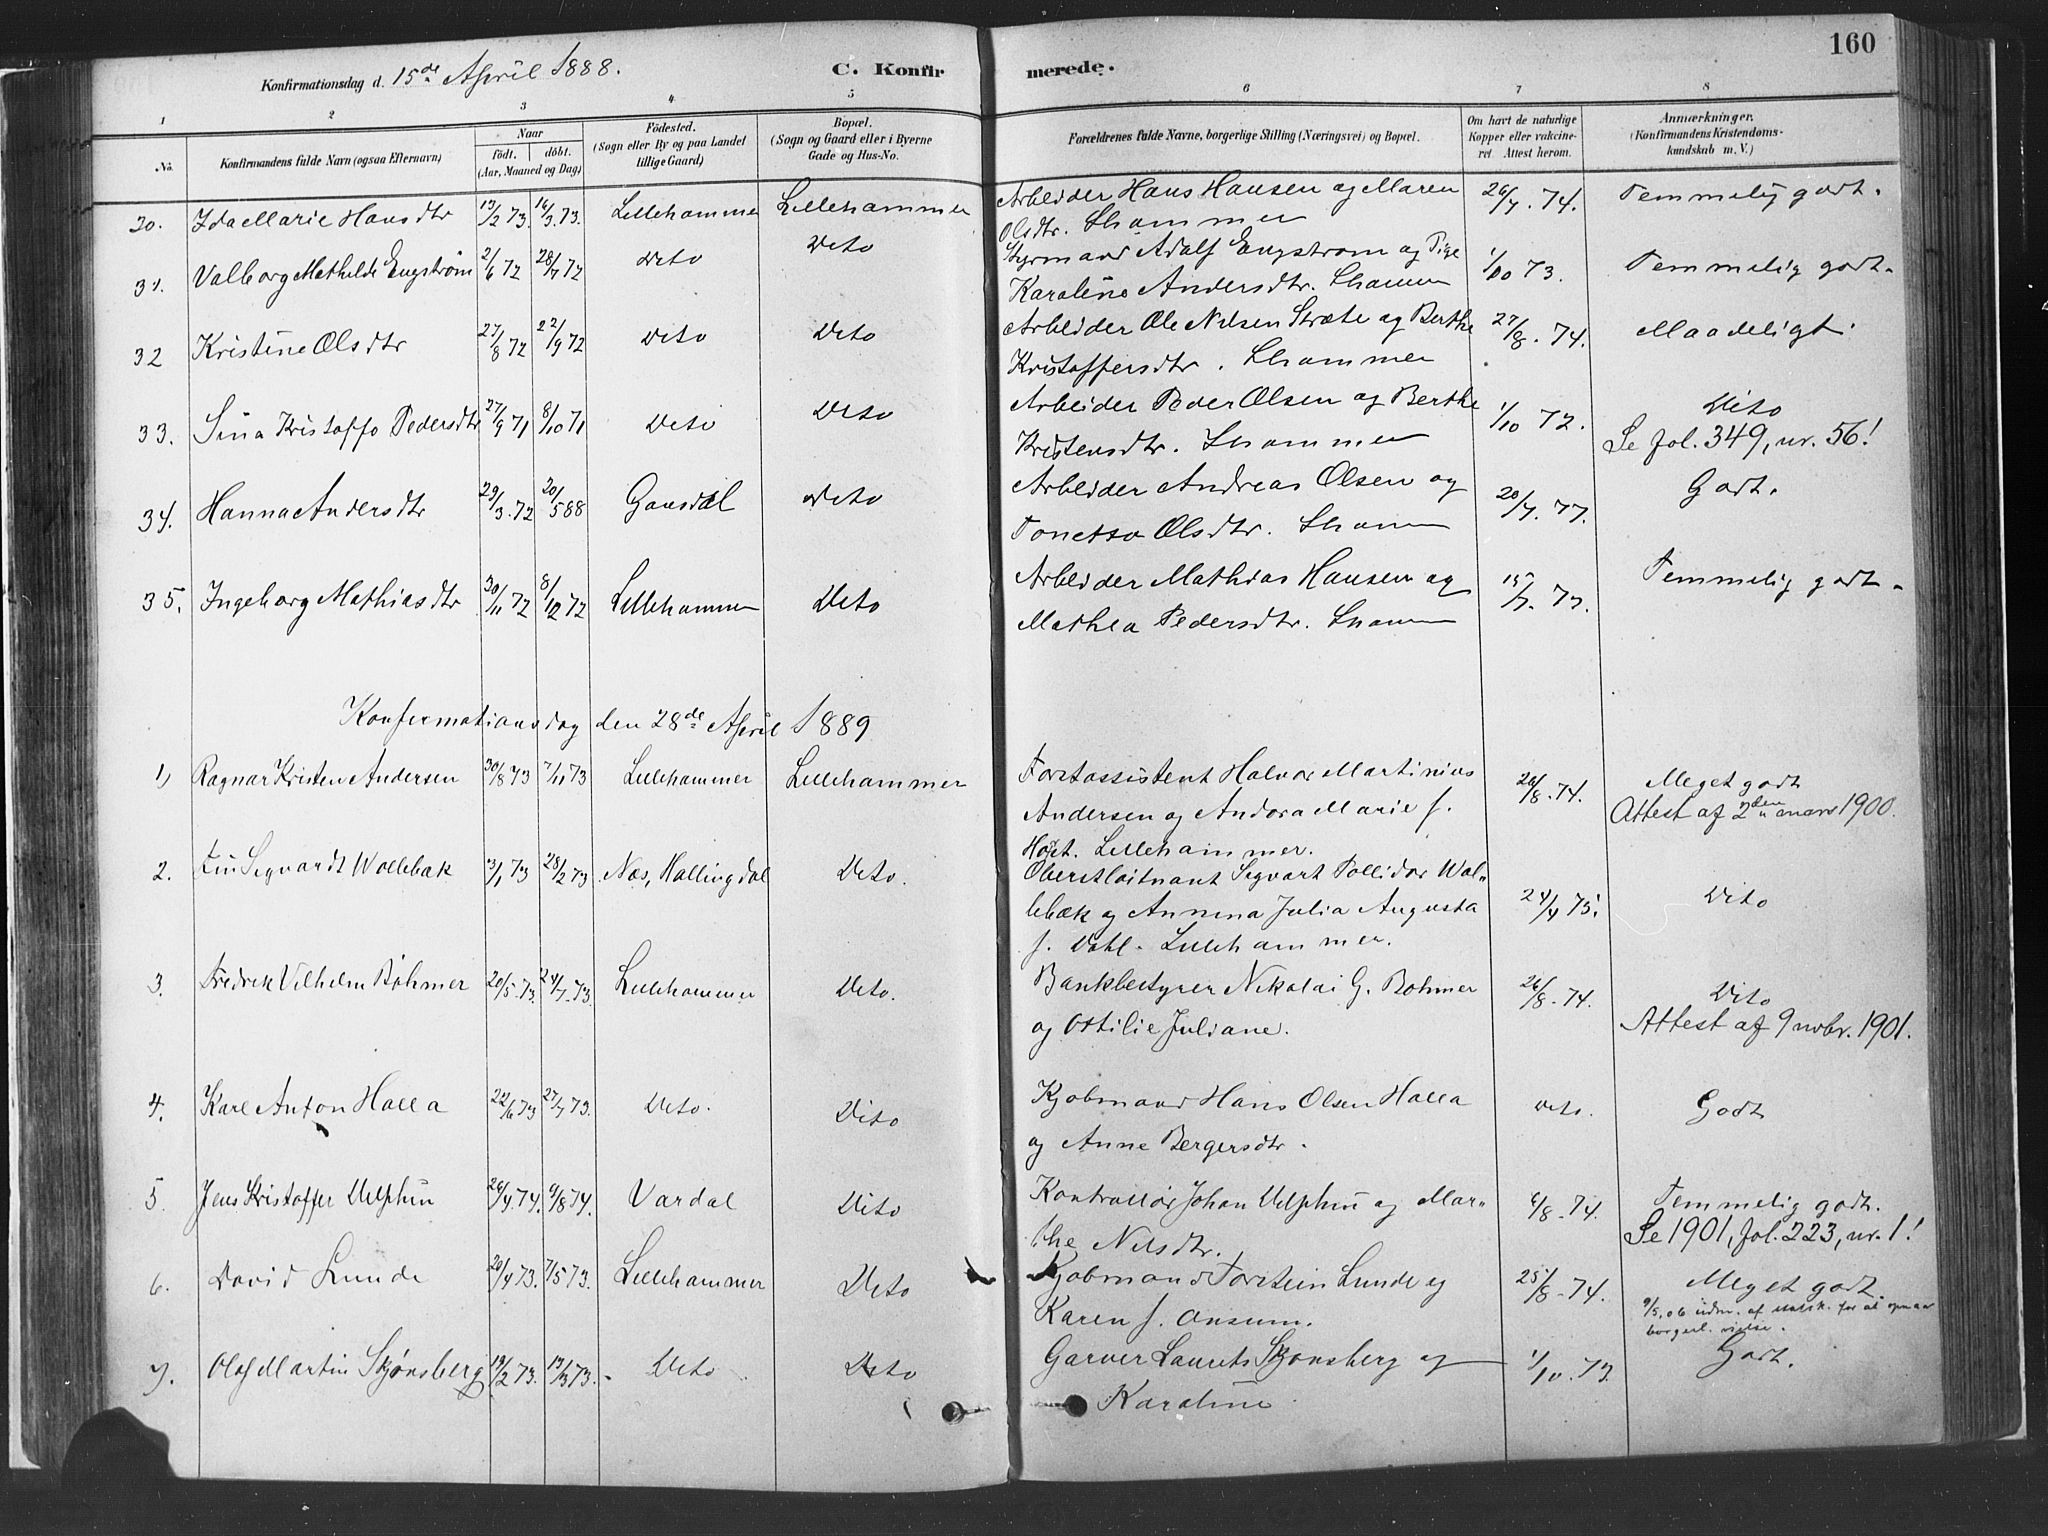 160
Konfirmationsdag d. 15de April 1888.
C. Konfirmerede.
1 2 3 4 5 6 7 8
No. Konfirmandens fulde Navn (ogsaa Efternavn) Naar født. døbt. (Aar, Maaned og Dag) Fødested. (Sogn eller By og paa Landet tillige Gaard) Bopæl. (Sogn og Gaard eller i Byerne Gade og Hus-No. Forældrenes fulde Navne, borgerlige Stilling (Næringsvei) og Bopæl. Om havt de naturlige Kopper eller vakcineret Attest herom. Anmærkninger. (Konfirmandens Kristendomskundskab m. V.)
30. Ida Marie Hansdtr 13/2 73. 16/3.73. Lillehammer Lillehammer Arbeider Hans Hansen og Maren Olsdtr. Lhammer 26/7. 74. Temmelig godt.
31. Valborg Mathilde Engstrøm 2/6 72 28/7 72 Dito Dito Styrmand Adolf Engstrøm og Pige Karoline Andersdtr. Lhammer 1/10 73. Temmelig godt.
32 Kristine Olsdtr 27/8 72 22/9 72 Dito Dito Arbeider Ole Nilsen Stræte og Berthe Kristoffersdtr. Lhammer 27/8. 74. Maadeligt.
33. Sina Kristoffa Pedersdtr 27/9 71 8/10 71 Dito Dito Arbeider Peder Olsen og Berthe Kristensdtr. Lhammer 1/10 72. Dito
Se fol. 349, nr. 56!
34. Hanna Andersdtr 29/3.72 20/5 88 Gausdal Dito Arbeider Andreas Olsen og Tonetta Olsdtr. Lhammer 20/7. 77. Godt.
35. Ingeborg Mathiasdtr 30/11 72 8/12 72 Lillehammer Dito Arbeider Mathias Hansen og Mathea Pedersdtr. Lhammer 15/7. 77. Temmelig godt.
Konfirmationsdag den 28de April 1889
1) Ragnar Kristen Andersen 30/8 73 7/11 73 Lillehammer Lillehammer Forstassistent Halvor Martinius Andersen og Andora Marie f. Hoset. Lillehammer. 26/8.74. Meget godt
Attest af 2den mars 1900.
2. Finn Sigvardt Wollebæk 3/1 73 28/2 73 Næs, Hallingdal Dito. Oberstløitnant Sigvart Pollidor Wollebæk og Annina Julia Augusta f. Dahl. Lillehammer. 24/4 75. Dito
3. Fredrik Vilhelm Bøhmer 20/5.73 24/7.73. Lillehammer Dito. Bankbestyrer Nikolai G. Bøhmer og Ottilie Juliane. 26/8.74. Dito
Attest af 9 novbr. 1901.
4. Karl Anton Halla 22/6 73 27/7 73. Dito. Dito Kjøbmand Hans Olsen Halla og Anne Bergersdtr. Dito. Godt
5. Jens Kristoffer Delphin 26/4.74. 9/8 74. Vardal Dito Kontrollør Johan Delphin og Marthe Nilsdtr. 6/8.74. Temmelig godt.
Se 1901, fol. 223, nr. 1!
6. David Lunde 20/4 73. 7/5 73. Lillehammer Dito Kjøbmand Torstein Lunde og Karen f. Onsum. 25/8.74. Meget godt.
9/5.06 udm. af attest. for borgerl. vielse.
7. Olaf Martin Skjønsberg 19/2 73. 13/3 73. Dito Dito Garver Laurits Skjønsberg og Karoline 1/10.73. Godt.